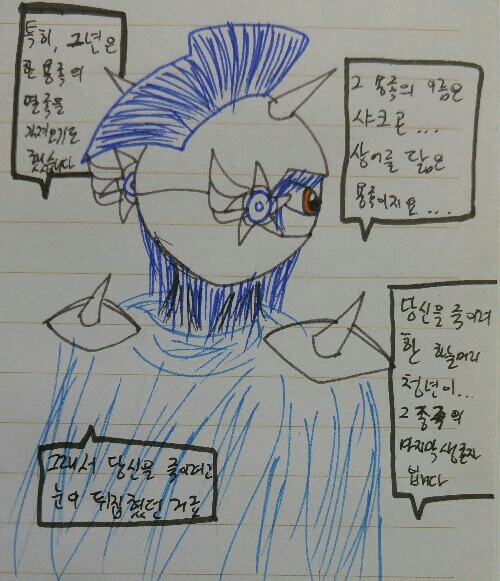 특히, 그년은
한 용족의
멸족을
가져오기도
했습니다
그 용족의 이름은
샤크곤...
상어를 닮은
용족이지요...
당신을 죽이려
한 하늘머리
청년이...
그 종족의
마지막 생존자
입니다
그래서 당신을 죽이려고
눈이 뒤집혔던 거군